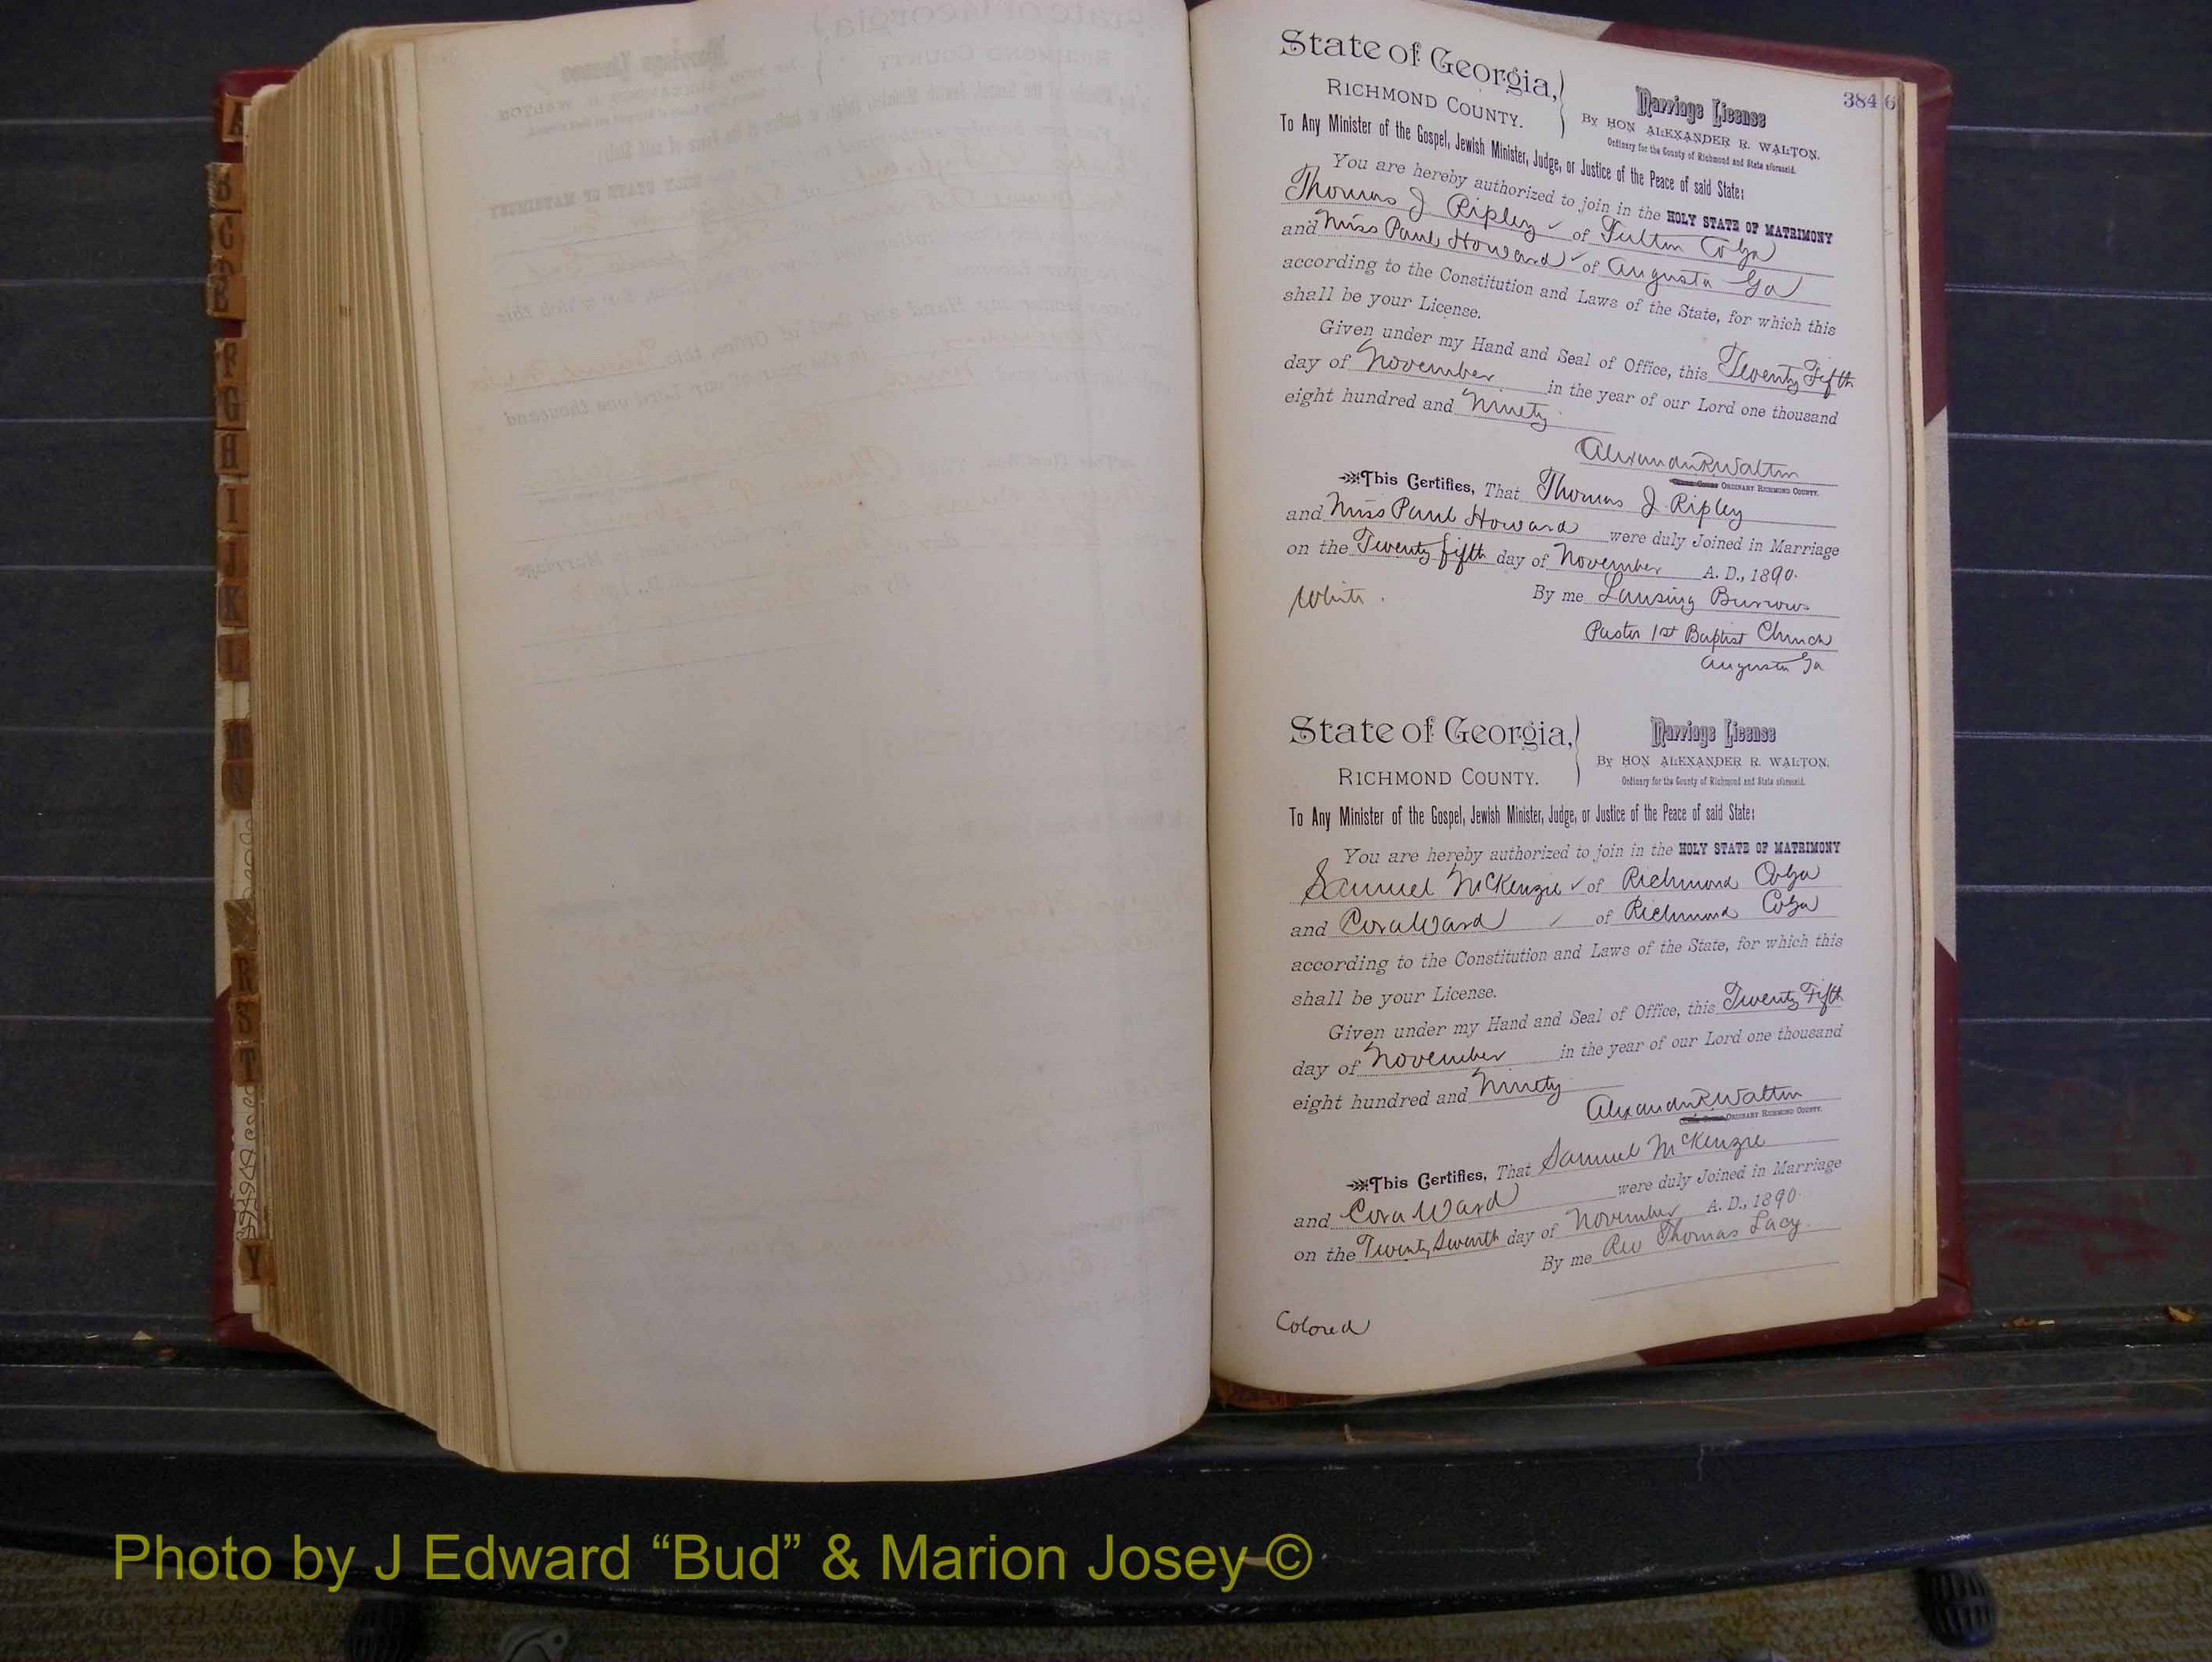 A
B
C
D
E
F
G
H
I
J
K
L
M
N
R
S
T
Y
384
6
State of Georgia,
RICHMOND COUNTY.
Marriage License
By HON ALEXANDER R. WALTON.
Ordinary for the County of Richmond and State aforesaid.
To Any Minister of the Gospel, Jewish Minister, Judge, or Justice of the Peace of said State:
You are hereby authorized to join in the HOLY STATE OF MATRIMONY
Thomas J Ripley of Fulton Co Ga
and Miss Paul Howard of Augusta Ga
according to the Constitution and Laws of the State, for which this
shall be your License.
Given under my Hand and Seal of Office, this Twenty Fifth
day of November in the year of our Lord one thousand
eight hundred and Ninety
Alexander R Walton
ORDINARY RICHMOND COUNTY.
This Certifies, That Thomas J. Ripley
and Miss Paul Howard were duly Joined in Marriage
on the Twenty fifth day of November A. D., 1890.
White. By me Lansing Burrows
Pastor 1st Baptist Church
Augusta Ga
State of Georgia,
RICHMOND COUNTY.
Marriage License
By HON ALEXANDER R. WALTON.
Ordinary for the County of Richmond and State aforesaid.
To Any Minister of the Gospel, Jewish Minister, Judge, or Justice of the Peace of said State:
You are hereby authorized to join in the HOLY STATE OF MATRIMONY
Samuel McKenzie of Richmond Co Ga
and Cora Ward of Richmond Co Ga
according to the Constitution and Laws of the State, for which this
shall be your License.
Given under my Hand and Seal of Office, this Twenty Fifth
day of November in the year of our Lord one thousand
eight hundred and Ninety
Alexander R Walton
ORDINARY RICHMOND COUNTY.
This Certifies, That Samuel McKenzie
and Cora Ward were duly Joined in Marriage
on the Twenty Seventh day of November A. D., 1890.
By me Rev Thomas Lacy.
Colored
Photo by J Edward “Bud” & Marion Josey ©